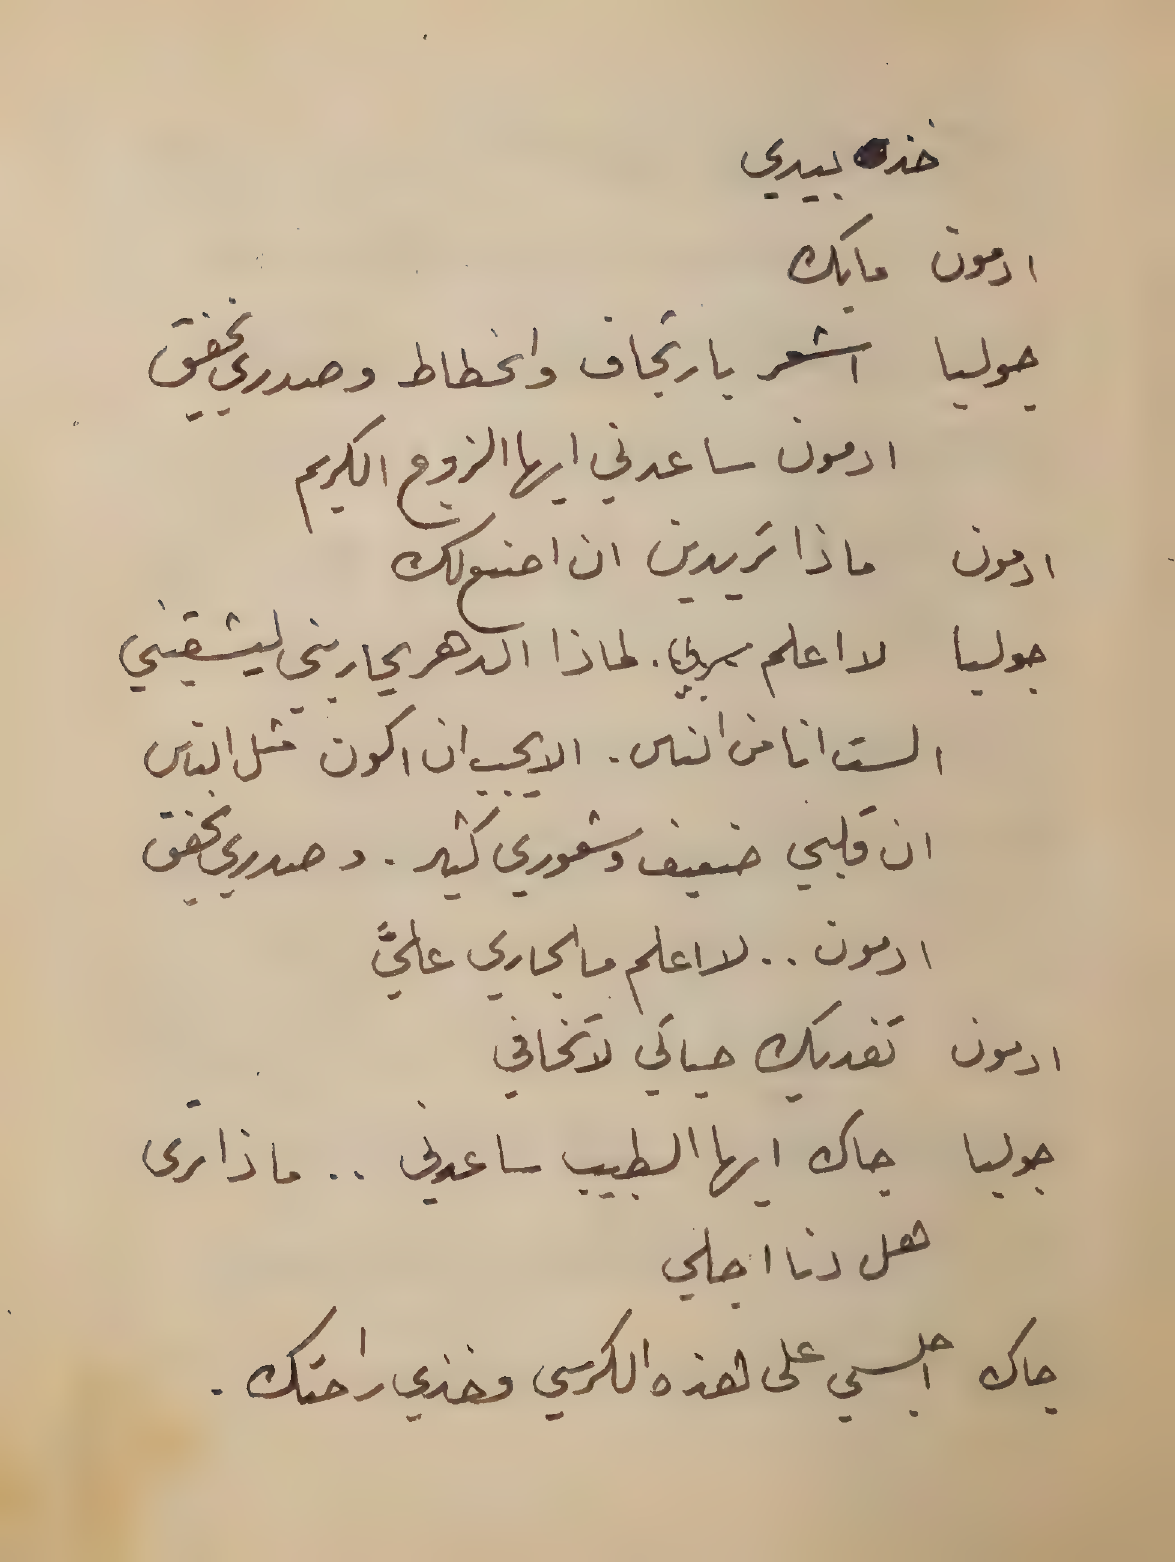 خذ بيدي
ادمون مابك
جوليا اشعر بارتجاف وانحطاط وصدري يخفق
ادمون ساعدني ايها الزوج الكريم
ادمون ماذا تريدين ان اصنع لك
جوليا لا اعلم . لماذا الدهر يحاربني ليشقيني
الست انا من الناس . الا يجب ان اكون مثل الناس
ان قلبي ضعيف وشعوري كثير . وصدري يخفق
ادمون .. لا اعلم ما الجاري عليَّ
ادمون تفديك حياتي لا تخافي
جوليا جاك ايها الطبيب ساعدني .. ماذا ترى
هل دنا اجلي
جاك اجلسي على هذه الكرسي وخذي راحتك .